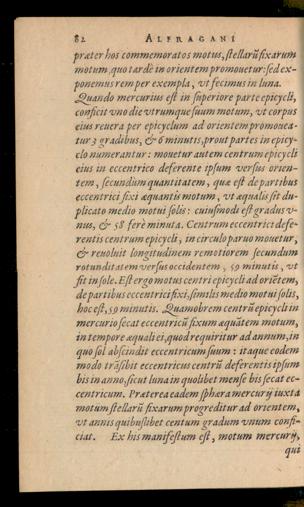 82 ALFRAGANI
præter hos commemoratos motus, stellarũ fixarum
motum, quo tardè in orientem promouetur: sed ex-
ponemus rem per exempla, vt fecimus in luna.
Quando mercurius est in superiore parte epicycli,
conficit vno die vtrumque suum motum, vt corpus
eius reuera per epicyclum ad orientem promouea-
tur 3 gradibus, & 6 minutis, prout partes in epicy-
clo numerantur: mouetur autem centrum epicycli
eius in eccentrico deferente ipsum versus orien-
tem, secundum quantitatem, quæ est de partibus
eccentrici fixi æquantis motum, vt æqualis sit du-
plicato medio motui solis: cuiusmodi est gradus v-
nus, & 58 ferè minuta. Centrum eccentrici defe-
rentis centrum epicycli, in circulo paruo mouetur,
& reuoluit longitudinem remotiorem secundum
rotunditatem versus occidentem, 59 minutis, vt
fit in sole. Est ergo motus centri epicycli ad oriẽtem,
de partibus eccentrici fixi, similis medio motui solis,
hoc est, 59 minutis. Quamobrem centrũ epicycli in
mercurio secat eccentricũ fixum æquãtem motum,
in tempore æquali ei, quod requiritur ad annum, in
quo sol abscindit eccentricum suum: itaque eodem
modo trãsibit eccentricus centrũ deferentis ipsum
bis in anno, sicut luna in quolibet mense bis secat ec-
centricum. Præterea eadem sphæra mercurij iuxta
motum stellarũ fixarum progreditur ad orientem,
vt annis quibuslibet centum gradum vnum confi-
ciat. Ex his manifestum est, motum mercurij,
qui